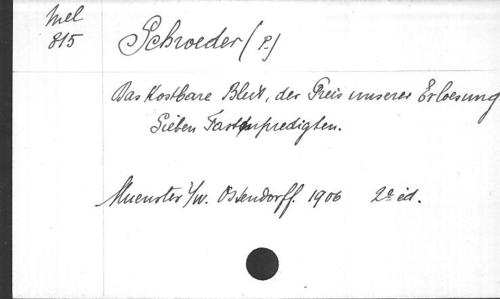 Mel
815
Schroeder (P.)
Das Kostbare Blut, der Preis unserer Erloesung
Sieben Fastenpredigten.
Muenster i/w. Ostendorff. 1906 2e éd.